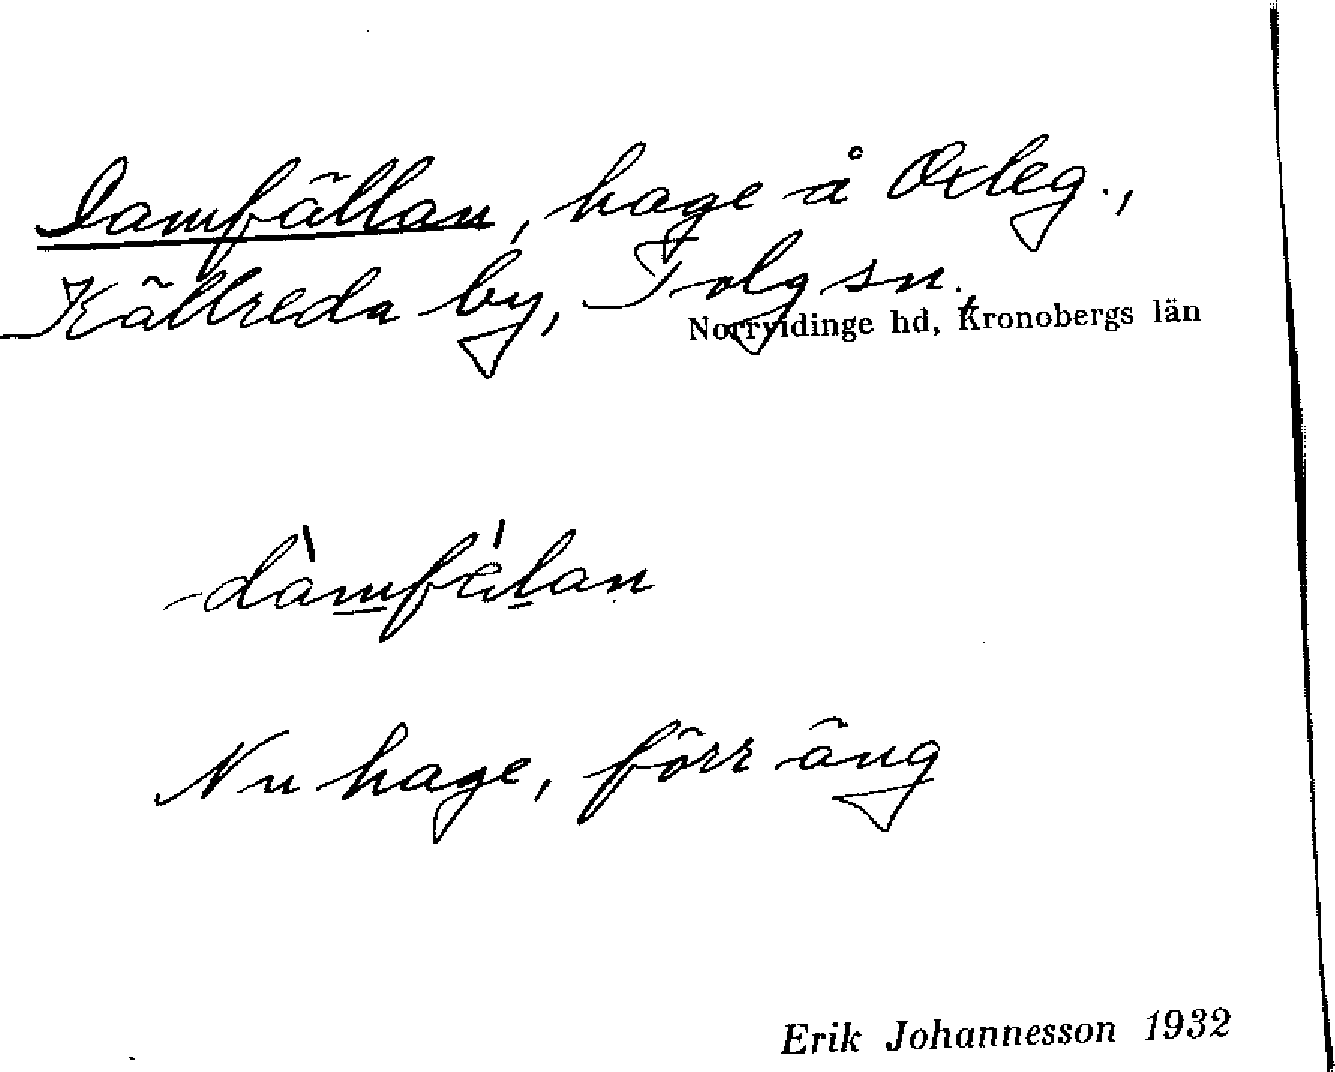 Damfällan, hage å Oxleg.,
Källreda by, Tolg sn.,
Norrvidinge hd, Kronobergs län
dàmfälan
Nu hage, förr äng
Erik Johannesson 1932